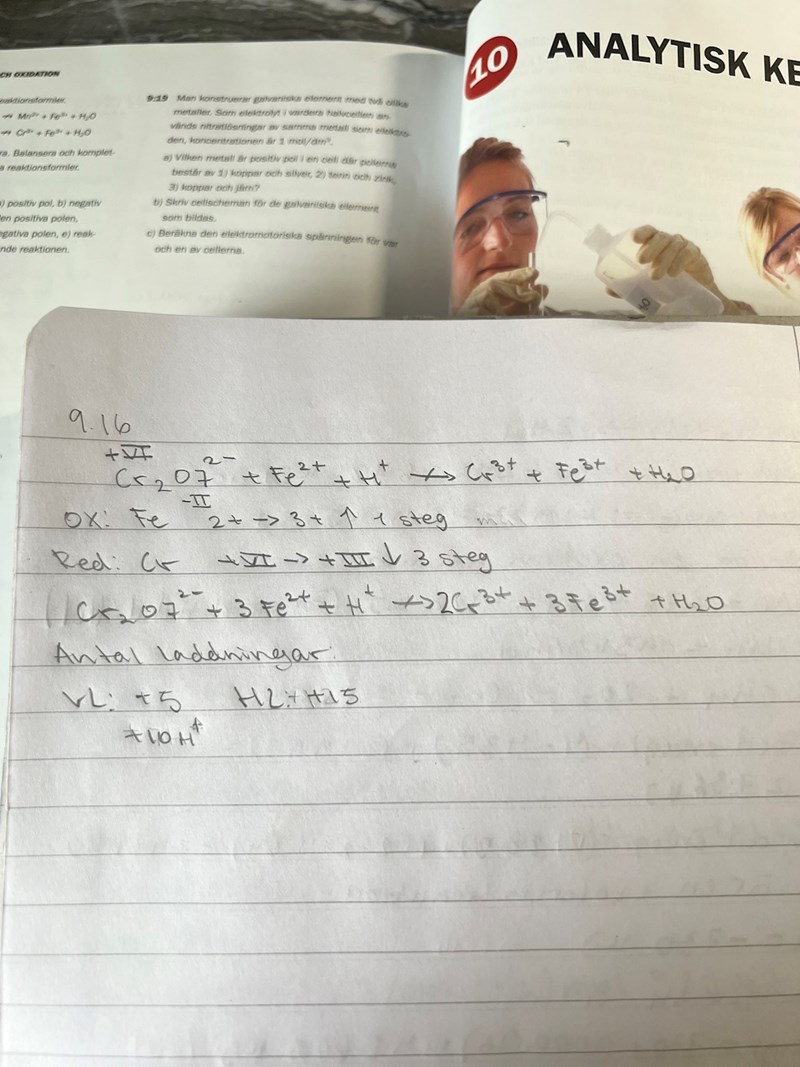 CH OXIDATION
eaktionsformler.
→ Mn²⁺ + Fe³⁺ + H₂O
→ Cr³⁺ + Fe³⁺ + H₂O
ra. Balansera och komplet-
a reaktionsformler.
) positiv pol, b) negativ
en positiva polen,
egativa polen, e) reak-
nde reaktionen.
9:19 Man konstruerar galvaniska element med två olika
metaller. Som elektrolyt i vardera halvcellen an-
vänds nitratlösningar av samma metall som elektro-
den, koncentrationen är 1 mol/dm³.
a) Vilken metall är positiv pol i en cell där polerna
består av 1) koppar och silver, 2) tenn och zink,
3) koppar och järn?
b) Skriv cellscheman för de galvaniska element
som bildas.
c) Beräkna den elektromotoriska spänningen för var
och en av cellerna.
10 ANALYTISK KE
9.16
+VI
Cr₂O7²⁻ + Fe²⁺ + H⁺ → Cr³⁺ + Fe³⁺ + H₂O
-II
OX: Fe 2+ → 3+ ↑ 1 steg
Red: Cr +VI → +III ↓ 3 steg
Cr₂O7²⁻ + 3Fe²⁺ + H⁺ → 2Cr³⁺ + 3Fe³⁺ + H₂O
Antal laddningar:
VL: +5 HL: +15
+10H⁺